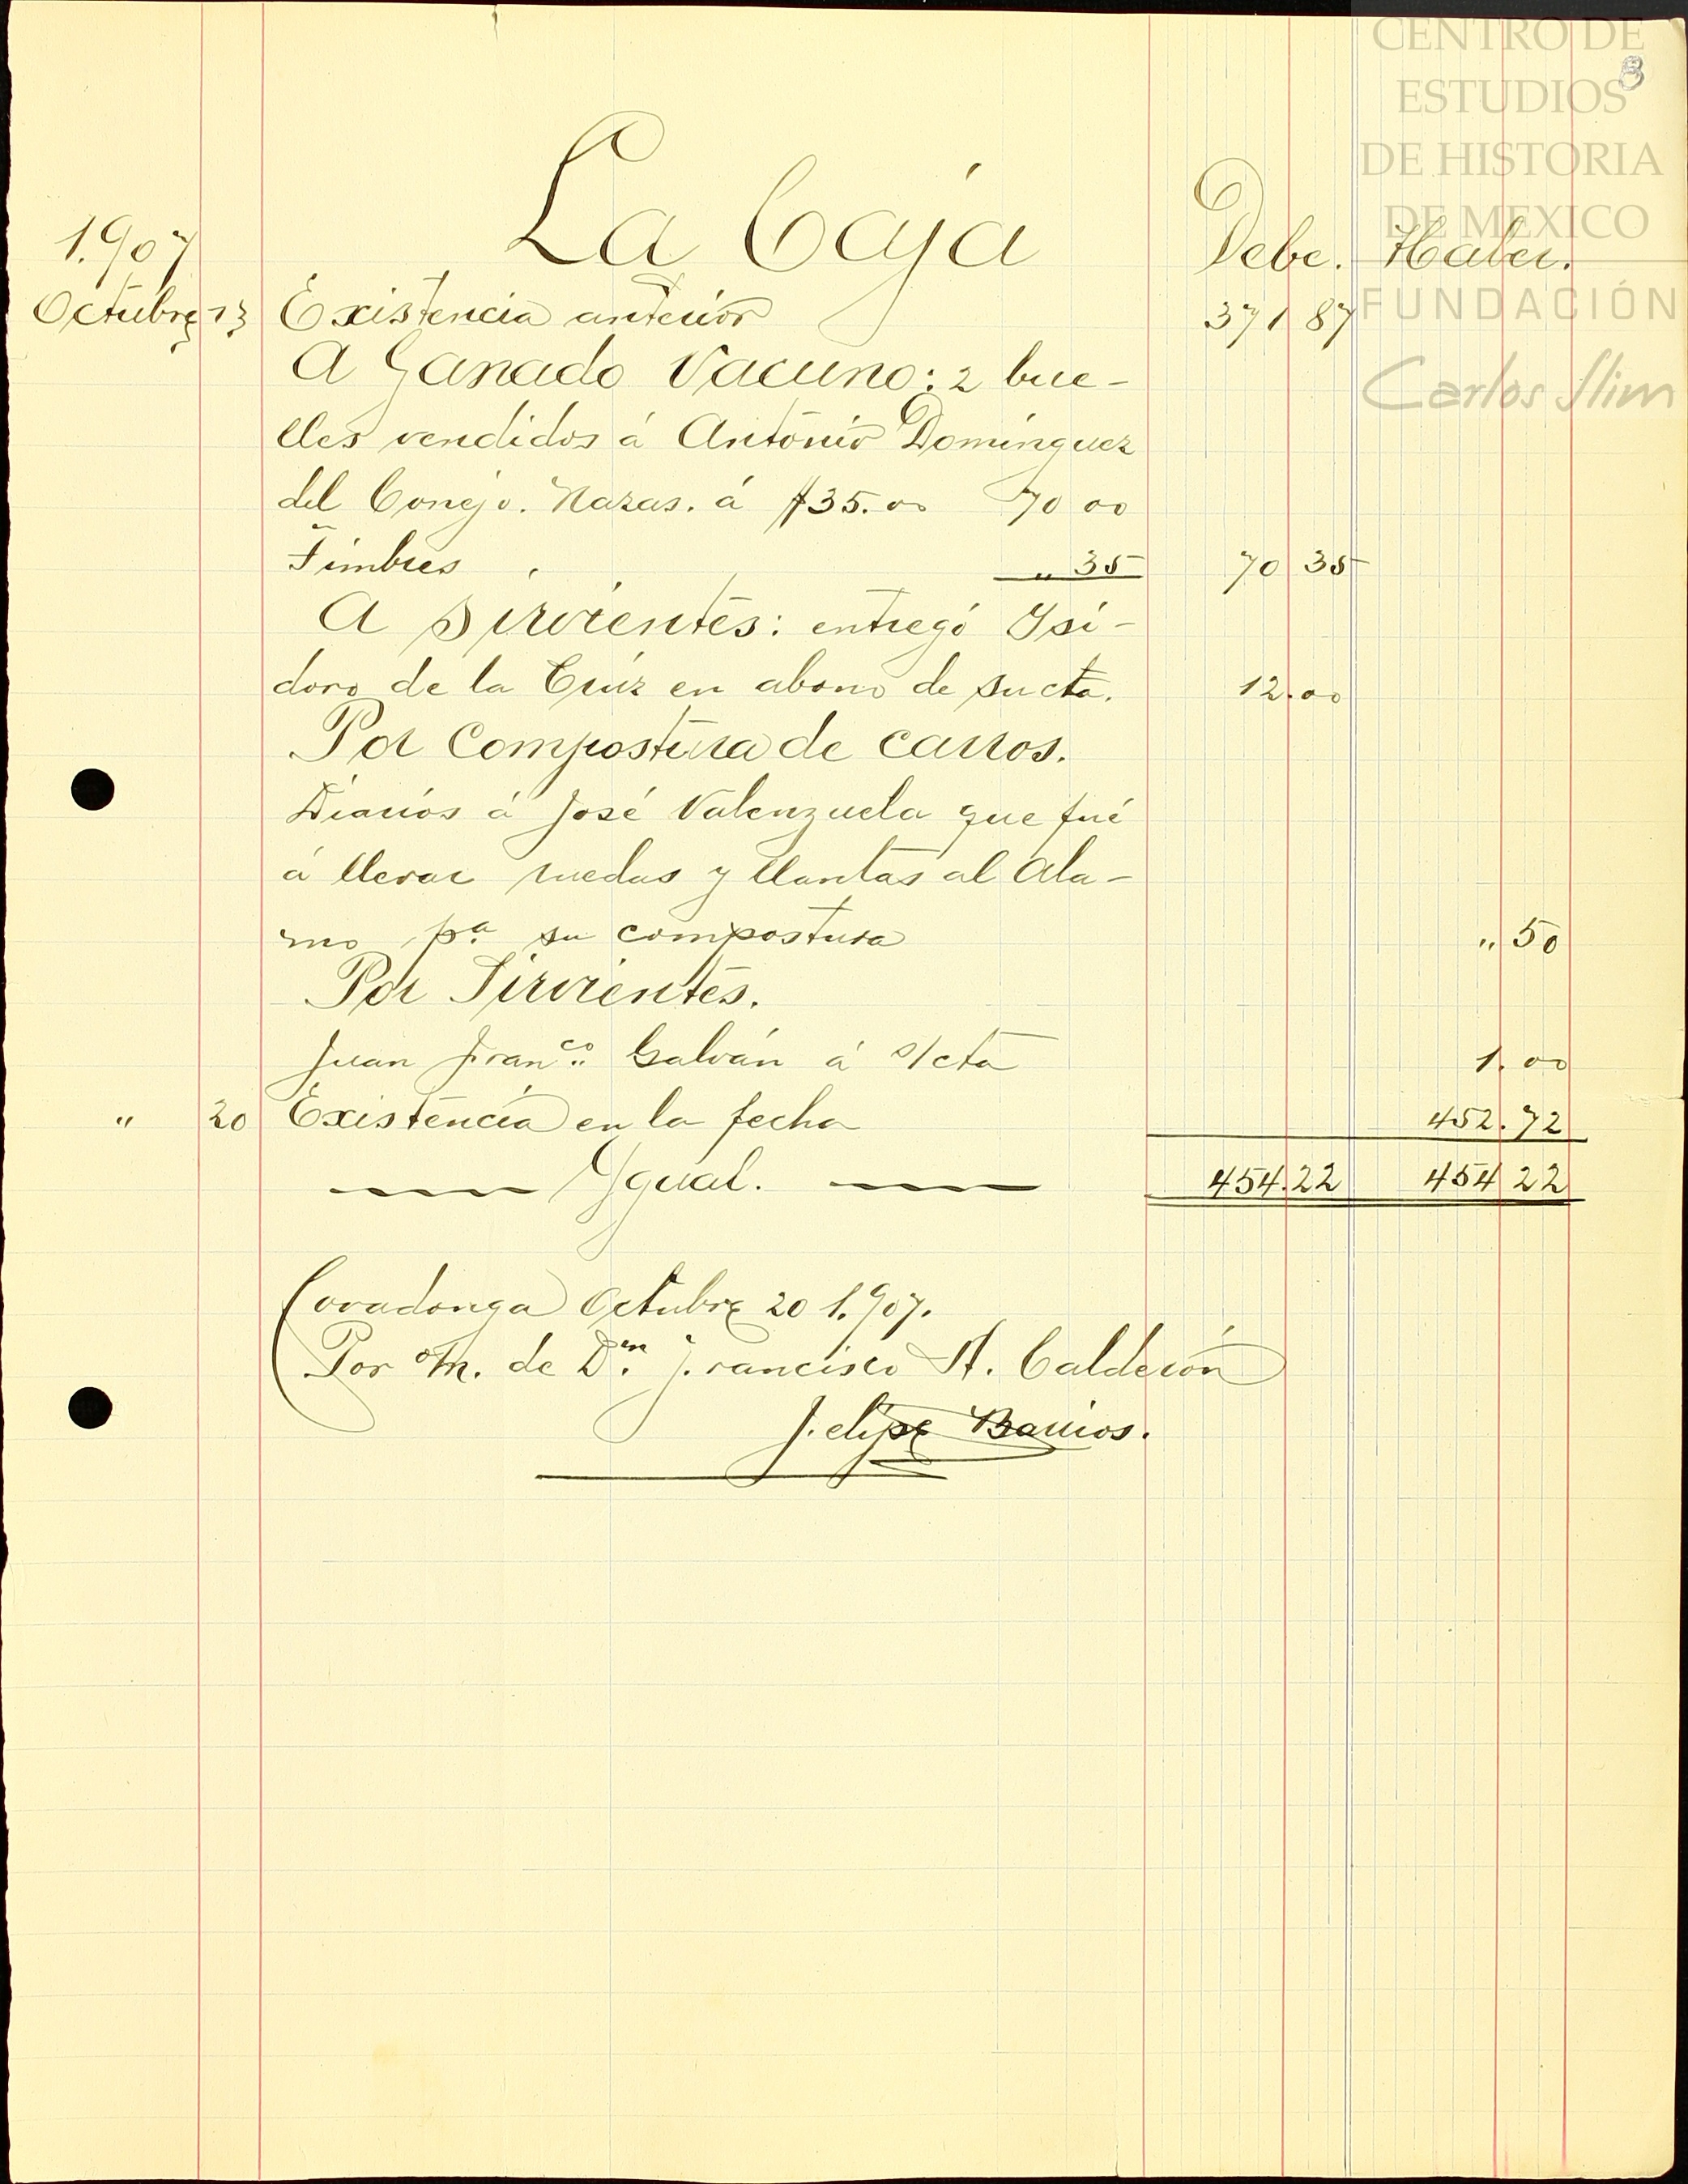 CENTRO DE
ESTUDIOS
DE HISTORIA
DE MEXICO
FUNDACIÓN
Carlos Slim
3
La Caja Debe. Haber.
1.907
Octubre 13 Existencia anterior 371 87
A Ganado Vacuno: 2 bue-
lles vendidos á Antonio Domínguez
del Conejo. Nazas. á $35.00 70 00
Timbres " 35 70 35
A Sirvientes: entregó Ysi-
doro de la Cruz en abono de su cta. 12.00
Por Compostura de carros.
Diarios á José Valenzuela que fué
á llevar ruedas y llantas al Ala-
mo pa. su compostura " 50
Por Sirvientes.
Juan Franco. Galván á s/cta 1.00
" 20 Existencia en la fecha 452.72
Ygual. 454.22 454 22
Covadonga Octubre 20 1.907.
Por M. de Dn. Francisco A. Calderón
Felipe Barrios.